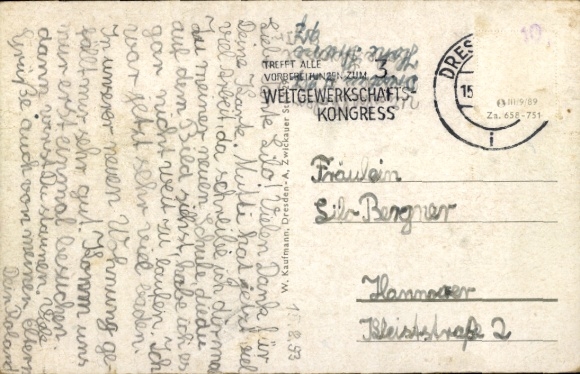 Liebe Tante Lilo! Vielen Dank für
Deine Karte. Mutti hat jetzt viel
viel Arbeit da schreibe ich dir mal
du meiner neuen Schule die du
auf den Bild siehst, habe ich es
gar nicht weit zu laufen. Ich
war jetzt sehr viel baden.
In unsrer neuen Wohnung ge-
fällt mir sehr gut. Komm uns
nur erst einmal besuchen
dann wirst Du staunen. Viele
Grüße auch von meinen Eltern
Dein Roland
W. Kaufmann, Dresden-A, Zwickauer
TREFFT ALLE
VORBEREITUNGEN ZUM 3.
WELTGEWERKSCHAFTS-
KONGRESS
DRES
15
i
10
III/9/89
Zn. 658-751
Fräulein
Lilo Bergner
Hannover
Kleiststraße 2
.8.53